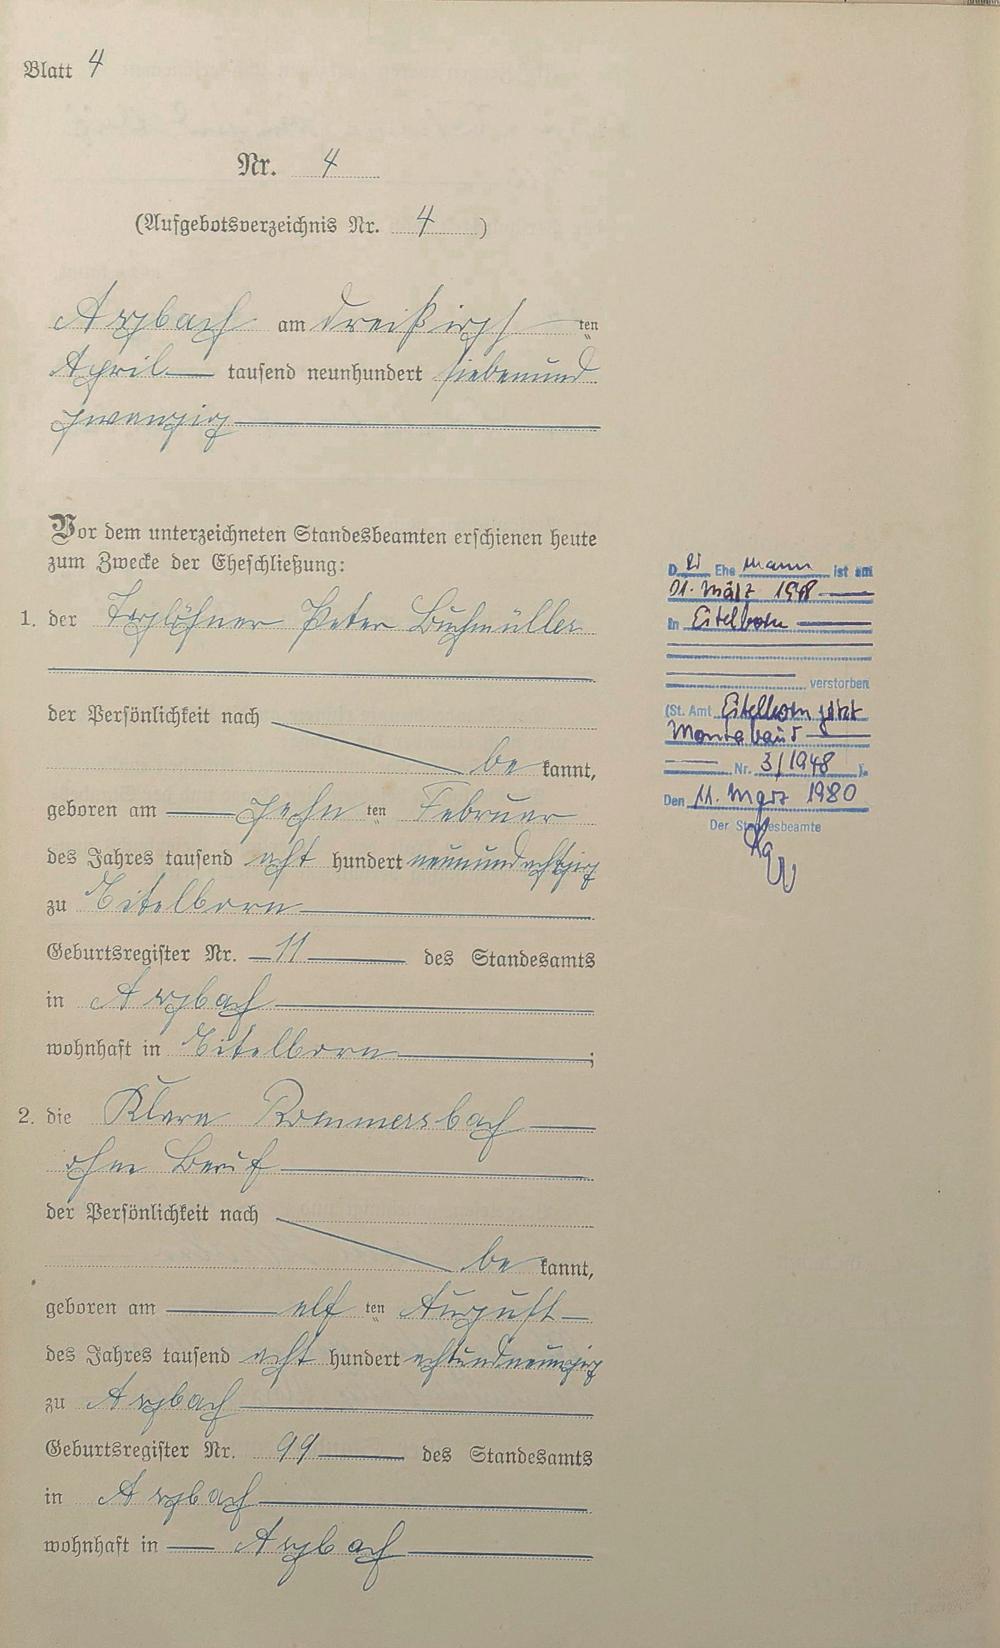 Blatt 4
Nr. 4
(Aufgebotsverzeichnis Nr. 4 )
Arzbach am dreißigs ten
April tausend neunhundert siebenund
zwanzig
Vor dem unterzeichneten Standesbeamten erschienen heute
zum Zwecke der Eheschließung:
1. der Taglöhner Peter Buchmüller
der Persönlichkeit nach
be kannt,
geboren am zehn ten Februar
des Jahres tausend acht hundert neunundachtzig
zu Eitelborn
Geburtsregister Nr. 11 des Standesamts
in Arzbach
wohnhaft in Eitelborn ;
2. die Klara Rommersbach
ohne Beruf
der Persönlichkeit nach
be kannt,
geboren am elf ten August
des Jahres tausend acht hundert achtundneunzig
zu Arzbach
Geburtsregister Nr. 99 des Standesamts
in Arzbach
wohnhaft in Arzbach
D er Ehe mann ist am
01. März 1948
in Eitelborn
verstorben
(St. Amt Eitelborn jetzt
Montabaur
Nr. 3/1948 ).
Den 11. März 1980
Der Standesbeamte